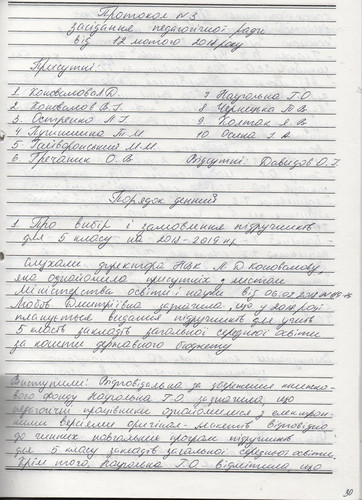 Протокол №3
засідання педагогічної ради
від 12 лютого 2018 року
Присутні:
1. Коновалова Л.Д.
2. Коновалов В.Г.
3. Остренко Л.Г.
4. Пушишина Т.М.
5. Гайворонський М.М.
6. Гречаник О.В.
7. Нагульна Г.О.
8. Чернишка Т.В.
9. Колтак Я.В.
10. Осина І.А.
Відсутні: Давидов О.Г.
Порядок денний
1. Про вибір і замовлення підручників
для 5 класу на 2018-2019 н.р.
Слухали: директора НВК Л.Д. Коновалову,
яка ознайомила присутніх з листом
Міністерства освіти і науки від 06.02.2018
Любов Дмитрівна зазначила, що у 2018 році
планується видання підручників для учнів
5 класів закладів загальної середньої освіти
за кошти державного бюджету
Виступили: Відповідальна за збереження книжко-
вого фонду Нагульна Г.О. зазначила, що
педагогічні працівники ознайомилися з електрон-
ними версіями оригінал-макетів відповідно
до чинних навчальних програм підручників
для 5 класу закладів загальної середньої освіти.
Крім того, Нагульна Г.О. відмітила, що
30